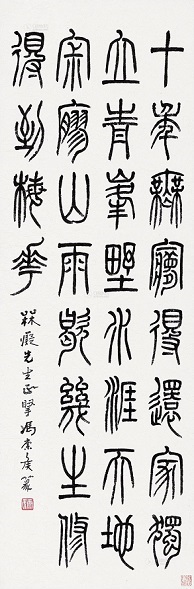 十年無夢得還家獨
立青峯野水涯天地
寂寥山雨歇幾生修
得到梅花
先生正 馮康侯篆